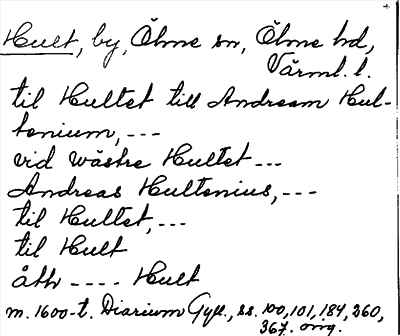 Hult, by, Ölme sn, Ölme hd,
Värml. l.
til Hultet till Andream Hul-
tenium, ---
vid wästre Hultet ---
Andreas Hultenius, ---
til Hultet, ---
til Hult
åth ---- Hult
m. 1600-t. Diarium Gyll., ss. 100, 101, 184, 260,
367. orig.